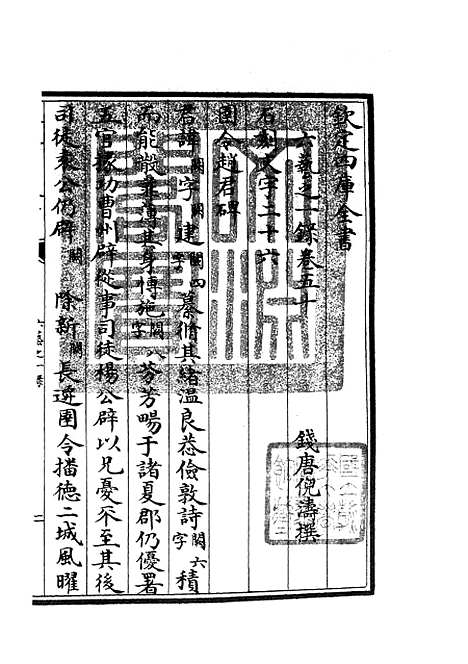 欽定四庫全書
六藝之一錄卷五十
錢唐倪濤撰
石刻文字二十六
圉令趙君碑
君諱闕字闕建闕四字慕脩其緒温良恭儉敦詩闕六字積
而能散菲薄其身博施闕八字芬芳暢于諸夏郡仍優署
五官掾功曹州辟從事司徒楊公辟以兄憂不至其後
司徒袁公仍辟闕除新闕長遷圉令播德二城風曜